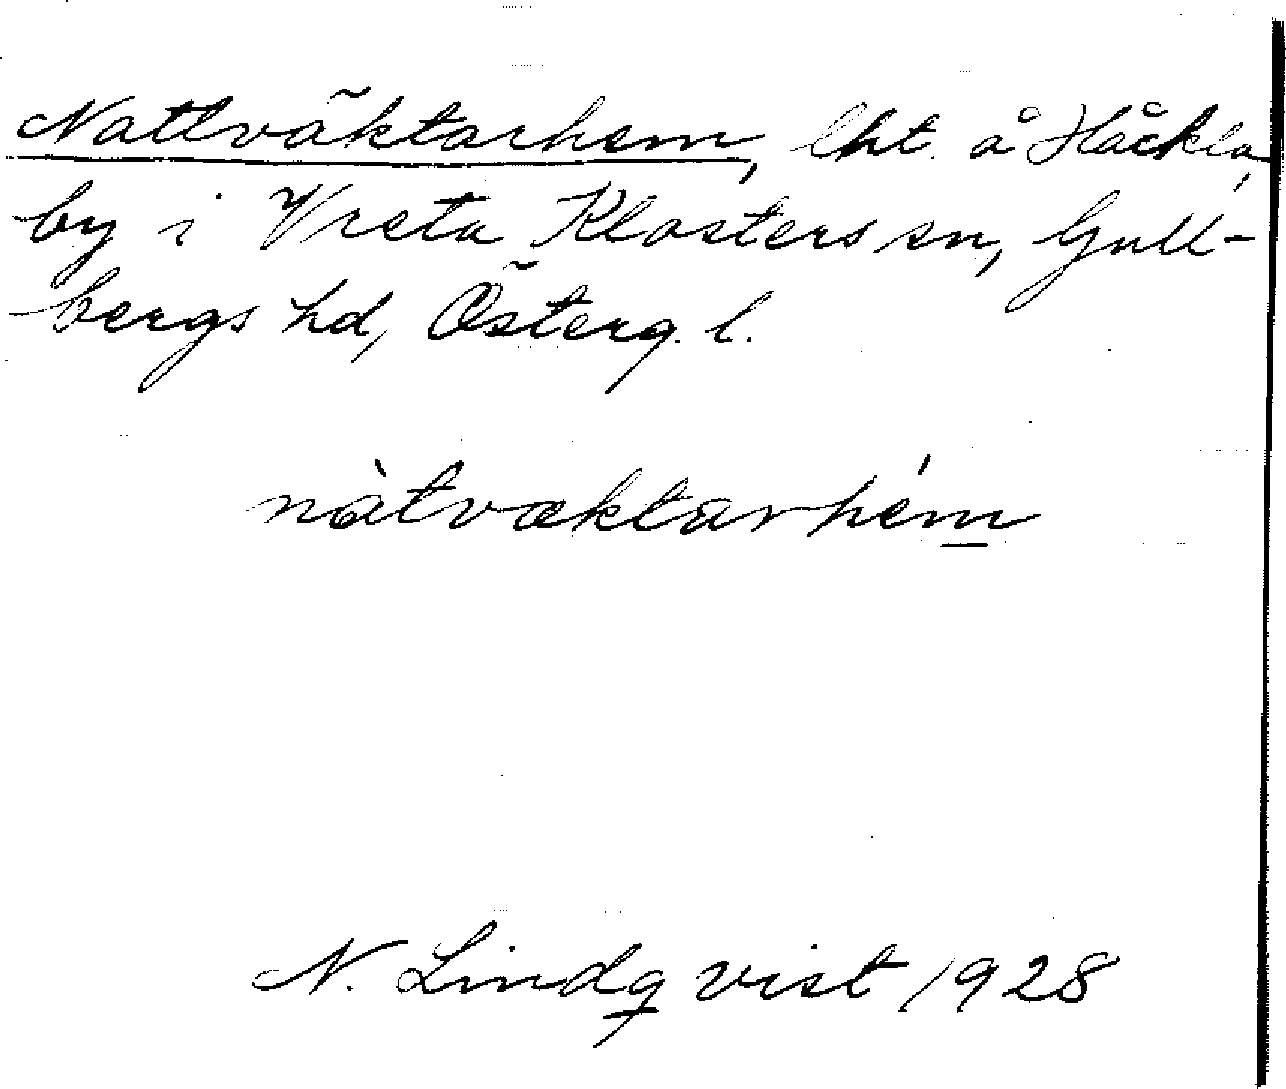 Nattväktarhem, lht. å Håckla,
by i Vreta Klosters sn, Gull-
bergs hd, Österg. l.
nàtvæktarhém
N. Lindqvist 1928